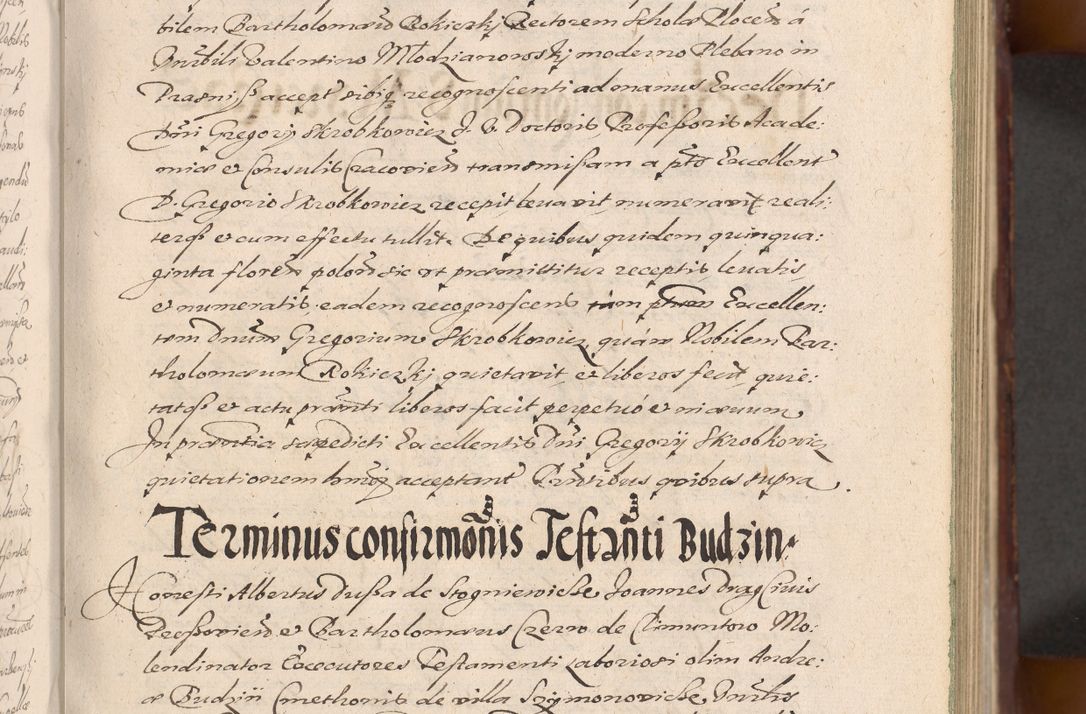 bilem Bartholomæũ Rokiczkj Rectorem Scholæ Plocen̄ á
Vnr̃bili Valentino Młodzianowskj moderno Plebano in
Prasniß accept sibiqz recognoscenti ad manus Excellentis
Dn̄i Gregorij Skrobkowicz J. V. Doctoris Professoris Acade:
miæ et Consulis Cracovien̄ transmissam a pr̄to Excellent
D. Gregorio Skrobkowicz recepit levavit numeravit reali:
terqz et cum effectu tullit. De quibus quidem quinqua:
ginta floren̄ polon̄ sic ut præmittitur receptis levatis
et numeratis eadem recognoscens tam Excellen:
tem Dnum̄ Gregorium Skrobkowicz, quám Nobilem Bar:
tholomæum Rokiczkj quietavit et liberos fecit, quie:
tatqz et actu præn̄ti liberos facit perpetuó et in ævum
In præn̄tia sæpedicti Excellentis Dn̄i Gregorij Skrobkowicz
quietationem hm̄oj acceptant Pn̄tibus quibus supra.
Terminus confirmõnis Testãnti Budzin.
Honesti Albertus Dußa de Stogniewicze Joannes Drag Civis
Proßovien̄ et Bartholomæus Czerw de Climuntow Mo:
lendinator Executores Testamenti Laboriosi olim Andre:
æ Budzij Cmethonis de villa Szymonowicze,